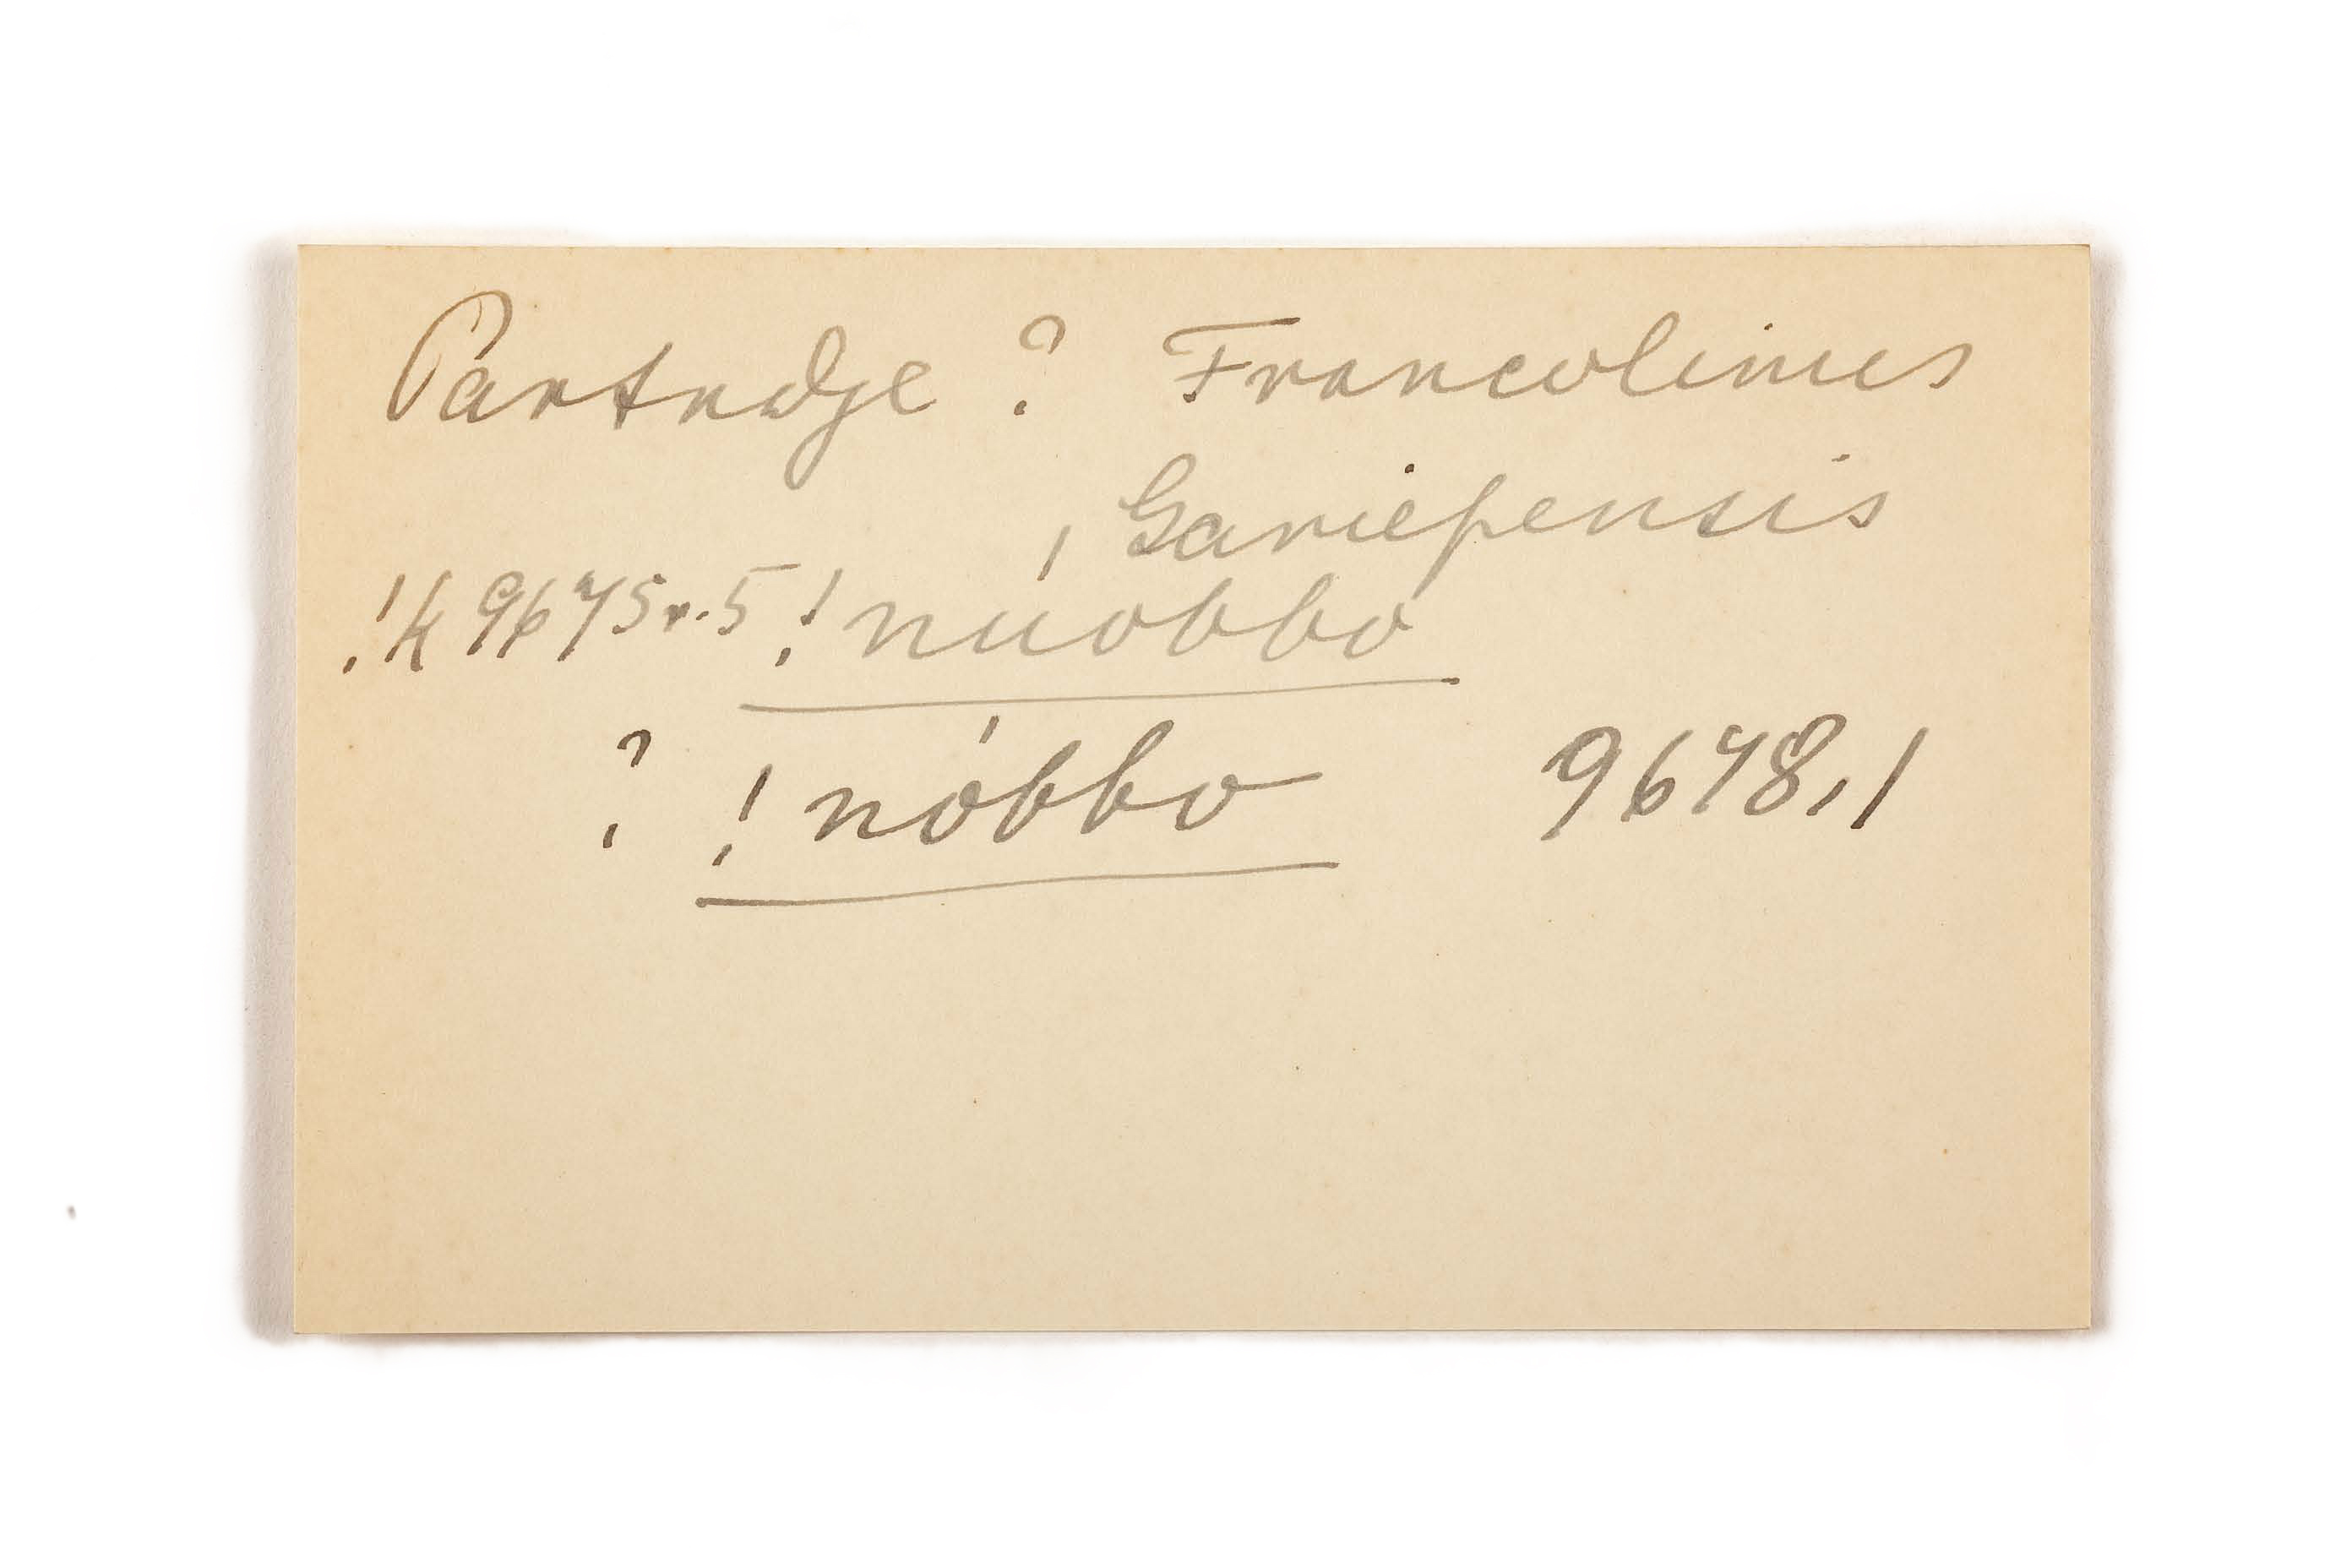 Partridge ? Francolinus
Gariepensis
!k 9675 r. 5 !núobbo
? !nóbbo 9678,1